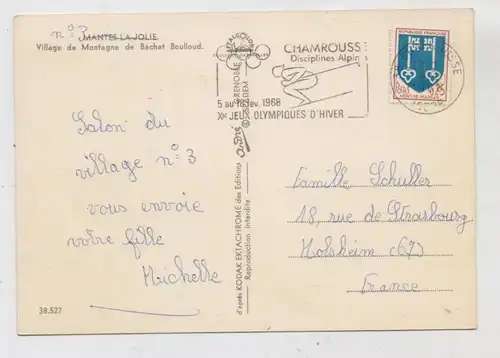 n° 3 MANTES-LA-JOLIE
Village de Montagne de Bachat Bouloud.
CHAMROUSSE
Disciplines Alpin
GRENOBLE
5 au 18 fév. 1968
Xe JEUX OLYMPIQUES D'HIVER
REPUBLIQUE FRANCAISE
Salon du
village n° 3
vous envoie
votre fille
Michelle
38.527
d'après KODAK EKTACHROME des Editions
Reproduction interdite
Famille Schuller
18, rue de Strasbourg
Molsheim (67)
France